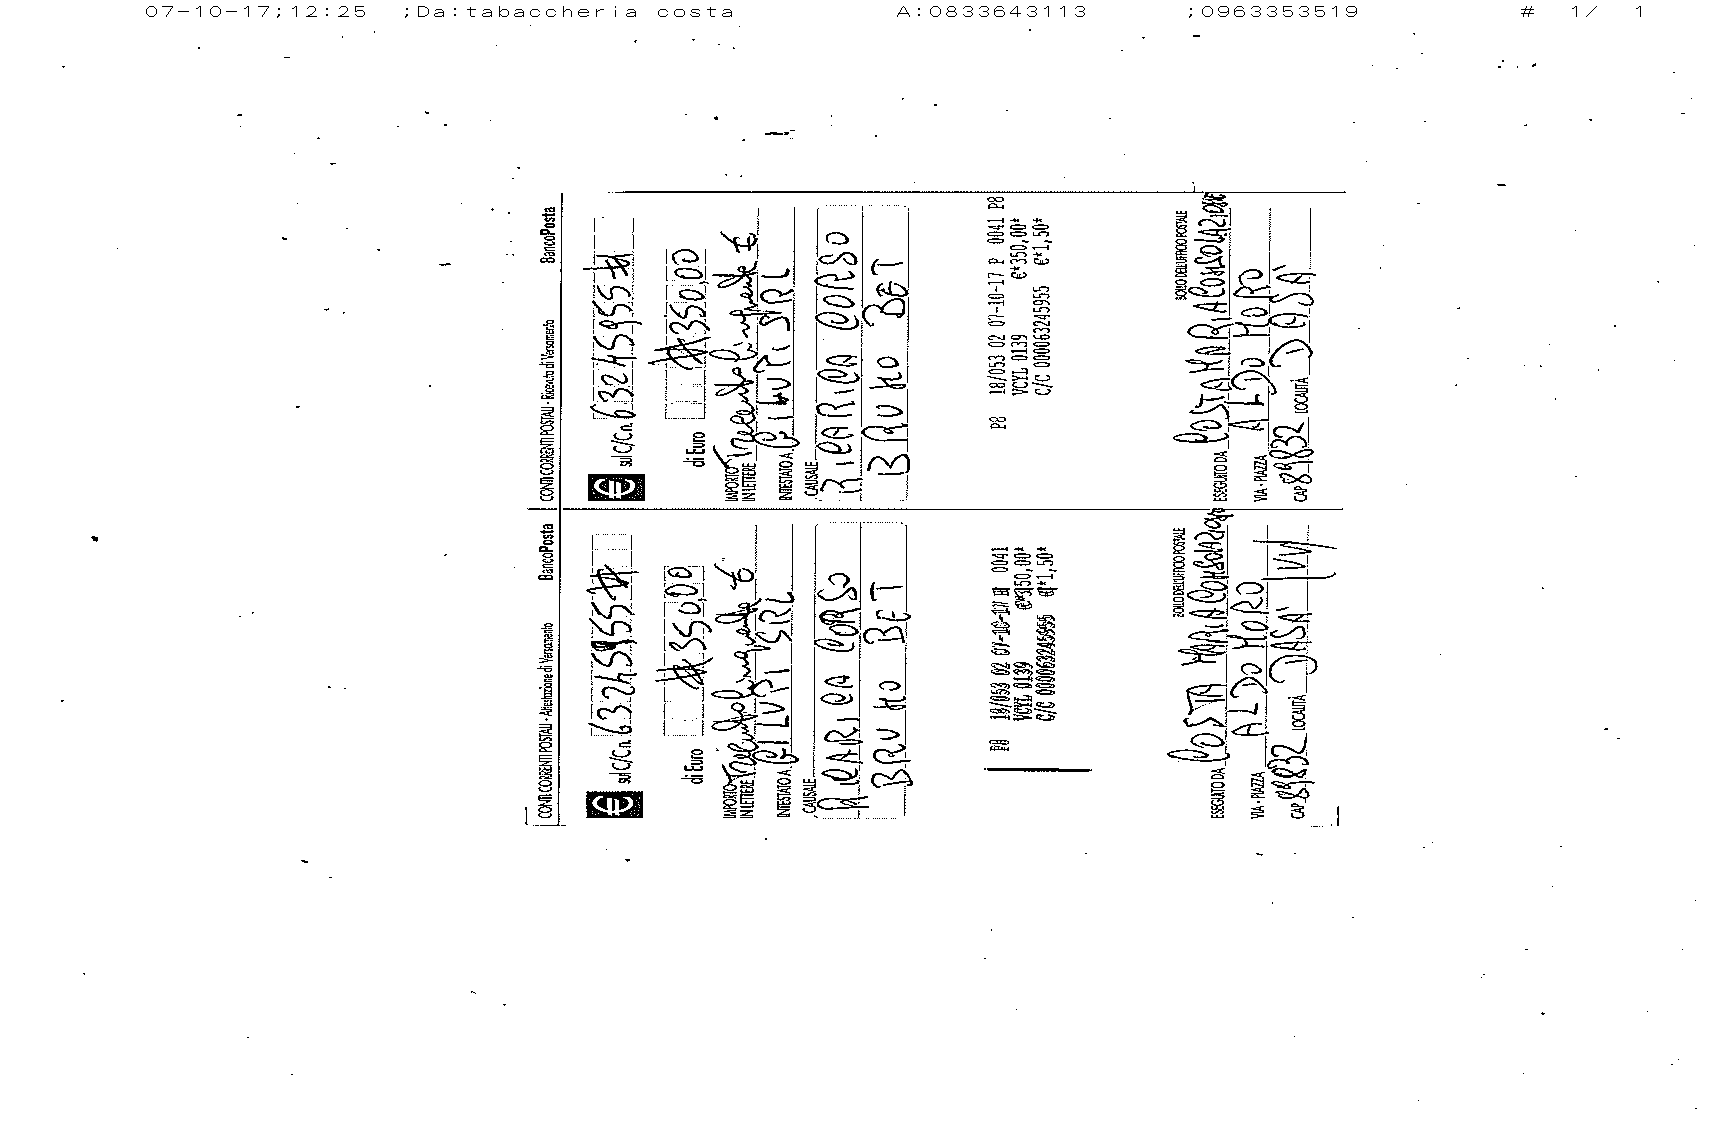 07-10-17;12:25 ;Da:tabaccheria costa A:0833643113 ;0963353519 # 1/ 1
CONTI CORRENTI POSTALI - Attestazione di Versamento BancoPosta
€ sul C/C n. 63245955 #
di Euro #350,00
IMPORTO IN LETTERE Trecentocinquanta €
INTESTATO A GILUPI SRL
CAUSALE
RICARICA CORSO
BRUNO BET
P8 18/053 02 07-10-17 P 0041
VCYL 0139 €*350,00*
C/C 000063245955 €*1,50*
BOLLO DELL'UFFICIO POSTALE
ESEGUITO DA COSTA MARIA CONSOLAZIONE
VIA - PIAZZA ALDO MORO
CAP 89832 LOCALITÀ DASÀ VV
CONTI CORRENTI POSTALI - Ricevuta di Versamento BancoPosta
€ sul C/C n. 63245955 #
di Euro #350,00
IMPORTO IN LETTERE Trecentocinquanta €
INTESTATO A GILUPI SRL
CAUSALE
RICARICA CORSO
BRUNO BET
P8 18/053 02 07-10-17 P 0041 P8
VCYL 0139 €*350,00*
C/C 000063245955 €*1,50*
BOLLO DELL'UFFICIO POSTALE
ESEGUITO DA COSTA MARIA CONSOLAZIONE
VIA - PIAZZA ALDO MORO
CAP 89832 LOCALITÀ DASÀ